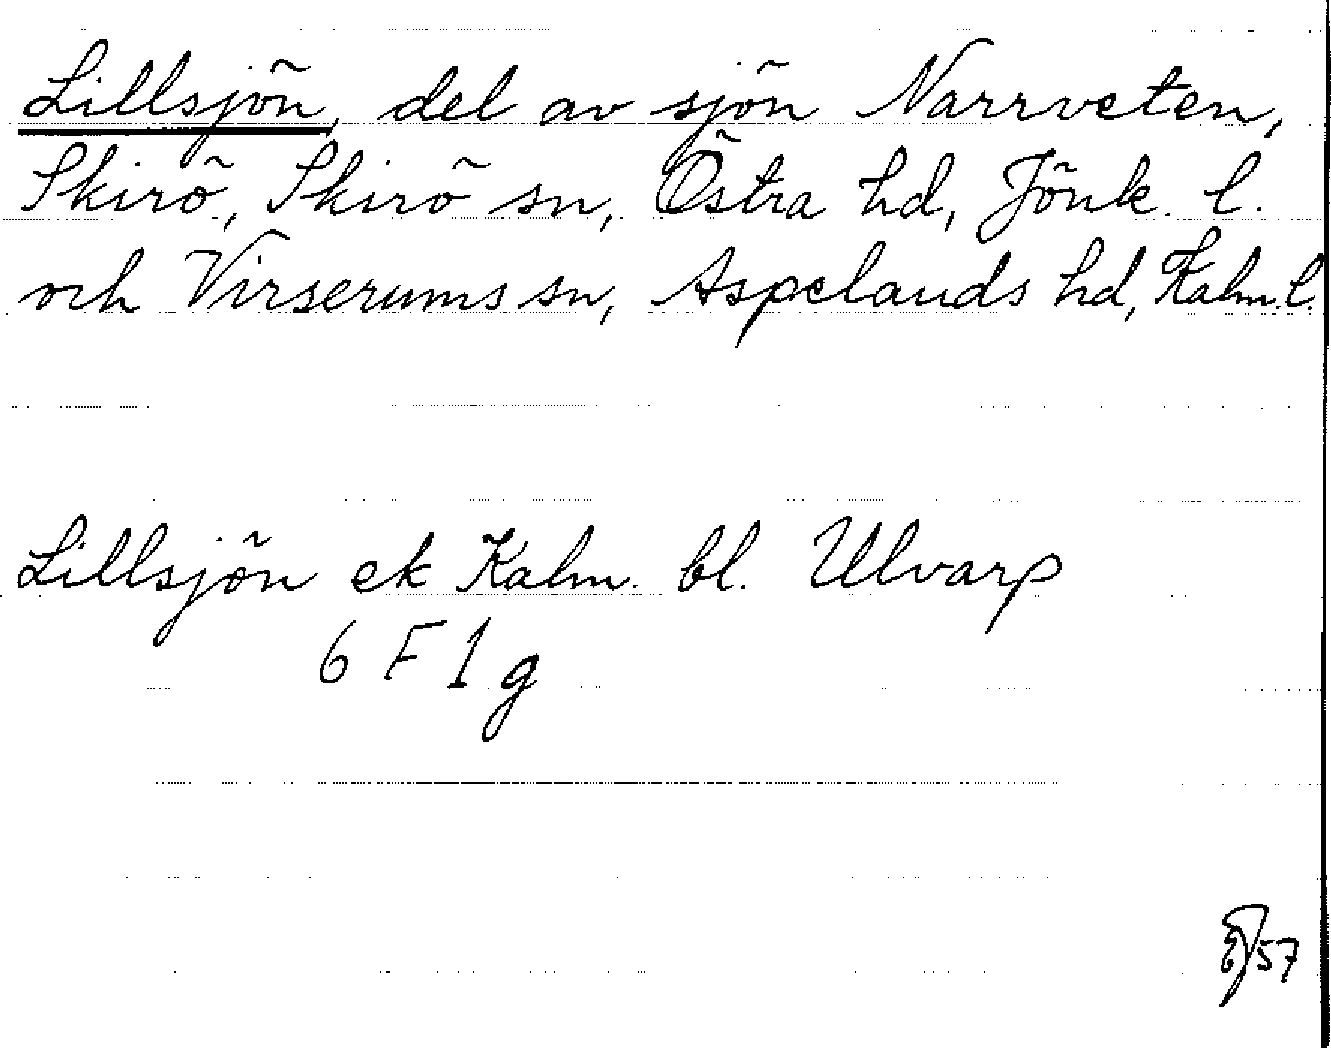 Lillsjön, del av sjön Narrveten,
Skirö, Skirö sn, Östra hd, Jönk. l.
och Virserums sn, Aspelands hd, Kalm. l.
Lillsjön ek Kalm. bl. Ulvarp
6 F 1 g
57